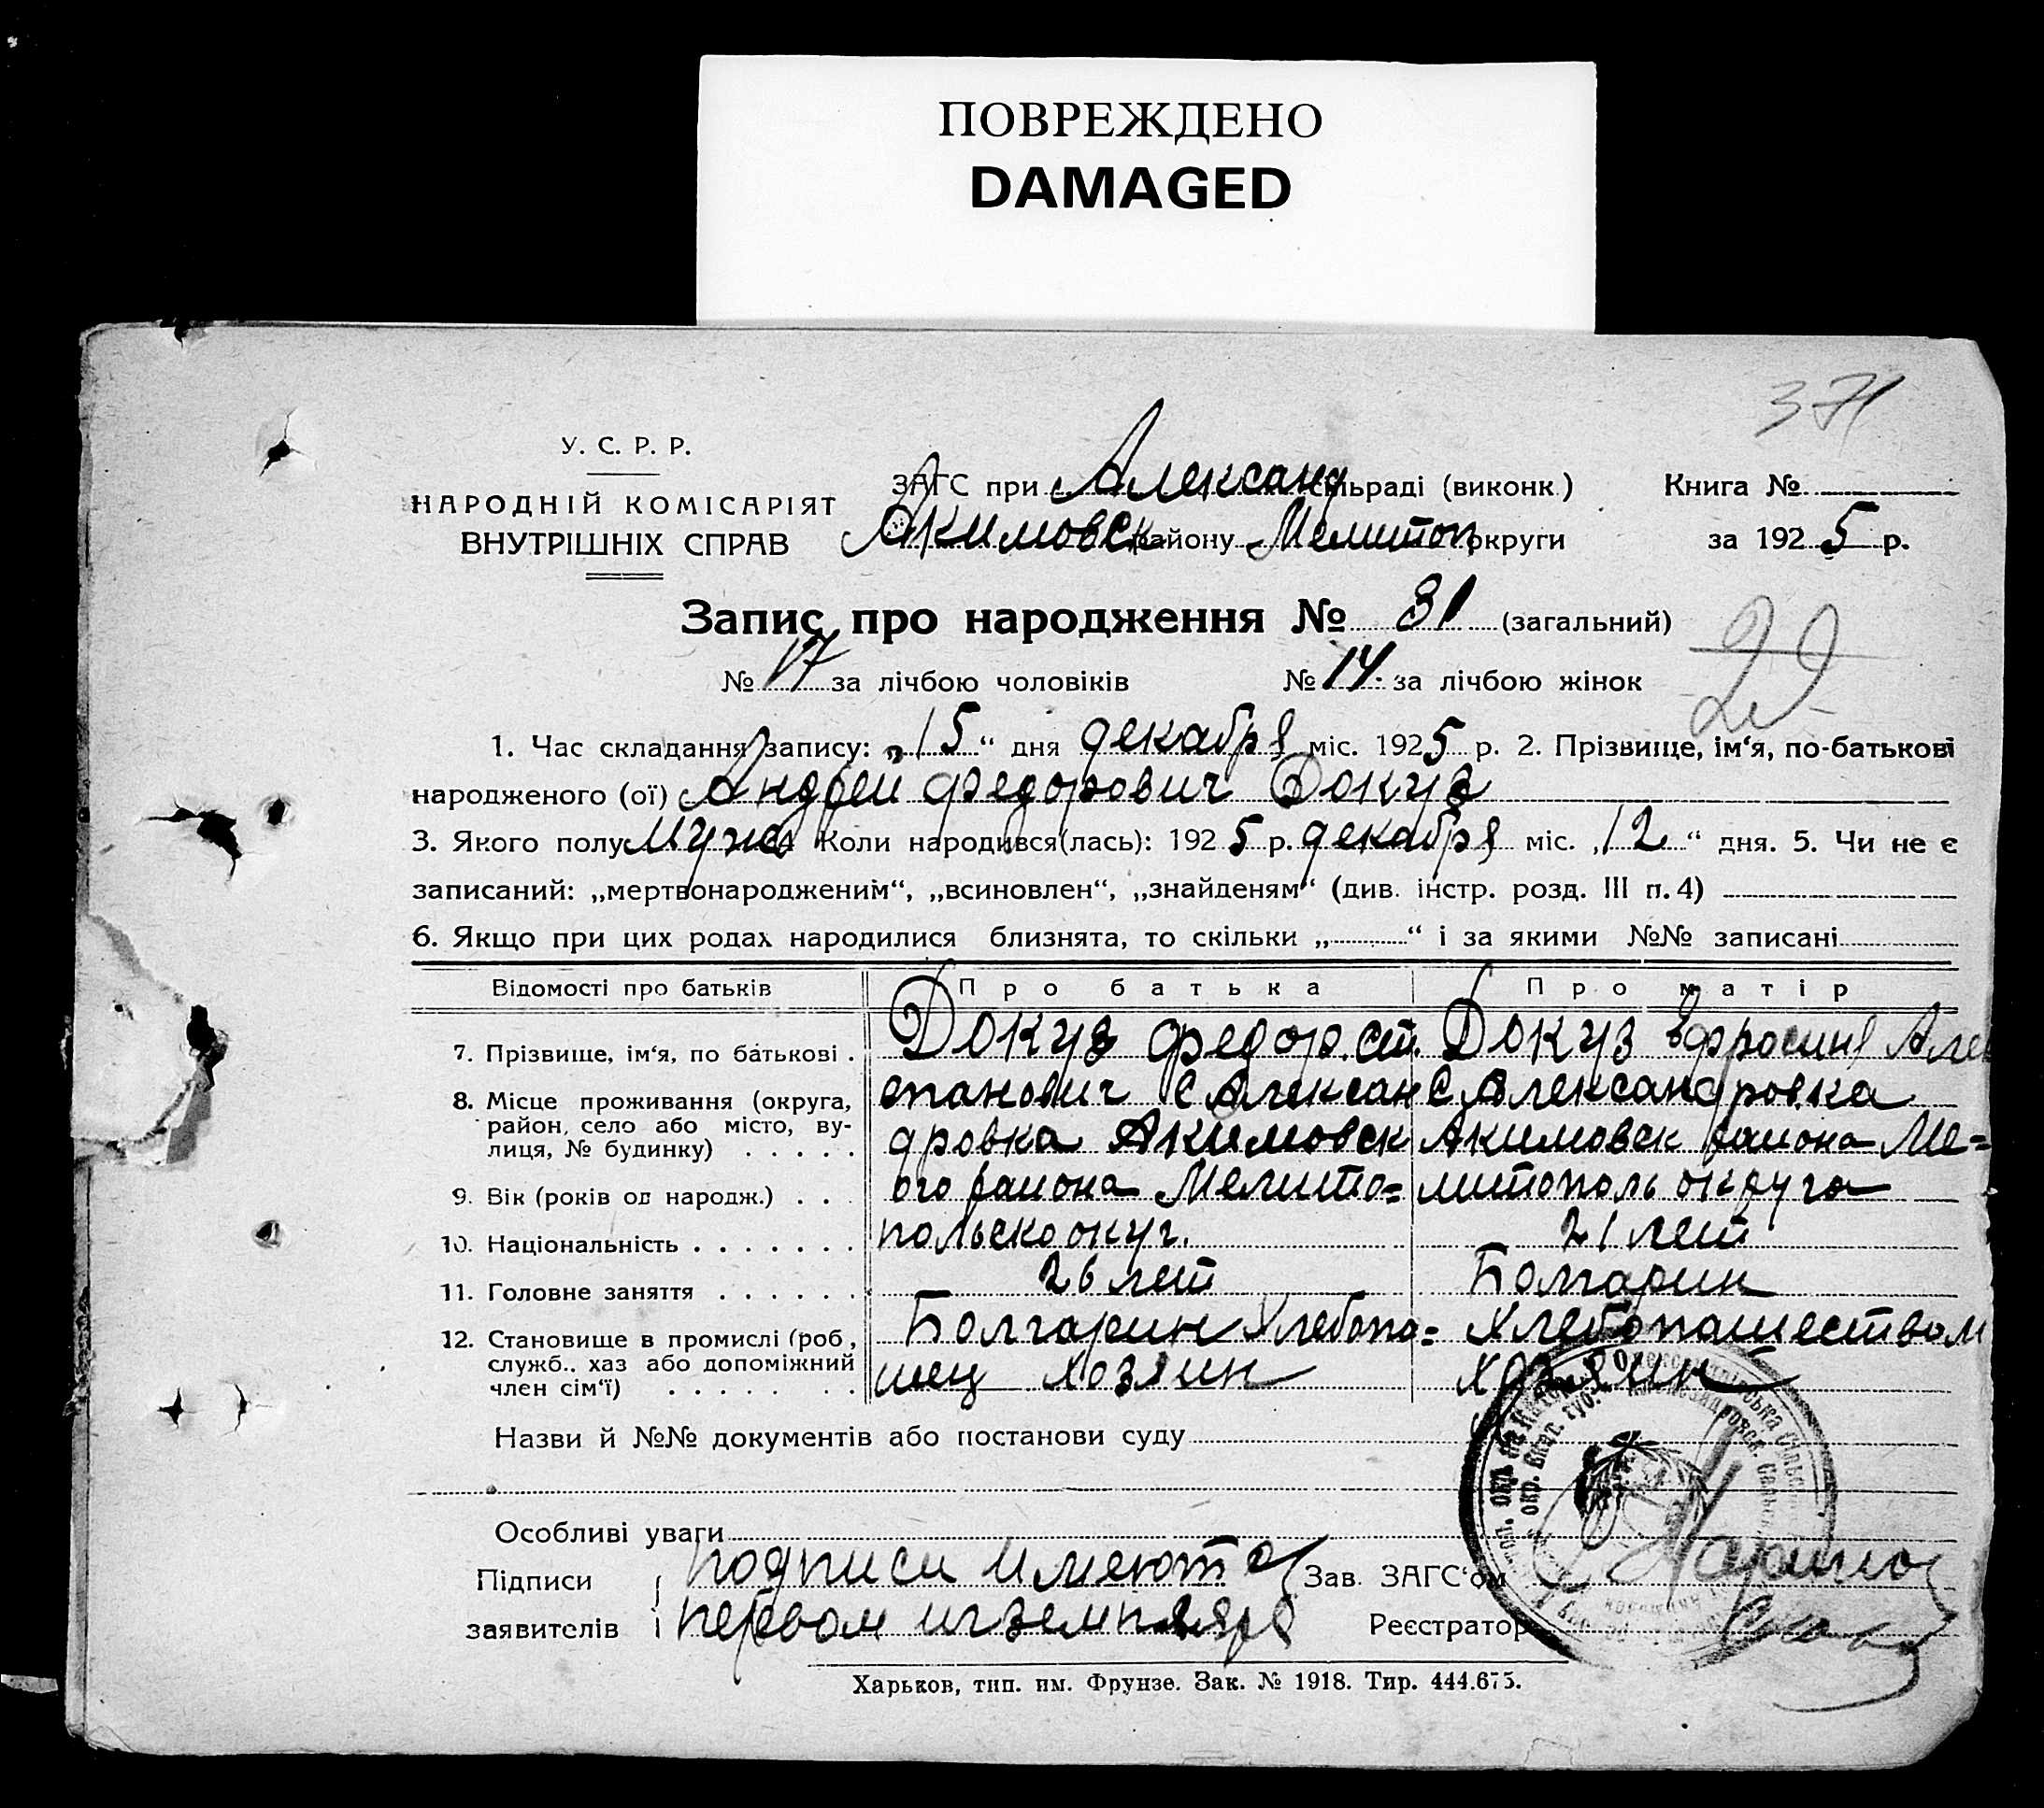 ПОВРЕЖДЕНО
DAMAGED
371
У. С. Р. Р.
НАРОДНІЙ КОМІСАРІЯТ
ВНУТРІШНІХ СПРАВ
ЗАГС при Александ сільраді (виконк.) Книга №
Акимовск району Мелитоп округи за 1925 р.
Запис про народження № 31 (загальний)
№ 17 за лічбою чоловіків № 14 за лічбою жінок
1. Час складання запису: „15“ дня декабря міс. 1925 р. 2. Прізвище, ім‘я, по-батькові
народженого (ої) Андреи Федорович Докуз
3. Якого полу Мужс Коли народився(лась): 1925 р. декабря міс. „12“ дня. 5. Чи не є
записаний: „мертвонародженим“, „всиновлен“, „знайденям“ (див. інстр. розд. III п. 4)
6. Якщо при цих родах народилися близнята, то скільки „ “ і за якими №№ записані
Відомості про батьків Про батька Про матір
7. Прізвище, ім‘я, по батькові . Докуз Федор. Ст. Докуз Ефросиня Але
8. Місце проживання (округа, епанович С Алексан С Александровка
район, село або місто, ву-
лиця, № будинку) . . . . . дровка Акимовск Акимовск раиона Ме=
9. Вік (років од народж.) . . . ого раиона Мелито= литополь округа
10. Національність . . . . . . . польско окуг. 21 лет
11. Головне заняття . . . . . . 26 лет Болгарин
12. Становище в промислі (роб., Болгарин Хлебопа= Хлебопашеством
служб., хаз або допоміжний
член сім‘ї) . . . . . . . шец хозяин хозяин
Назви й №№ документів або постанови суду
Особливі уваги
Підписи подписи имеютса Зав. ЗАГС‘ом
заявителів первом игземпляре Реєстратор
Харьков, тип. им. Фрунзе. Зак. № 1918. Тир. 444.675.